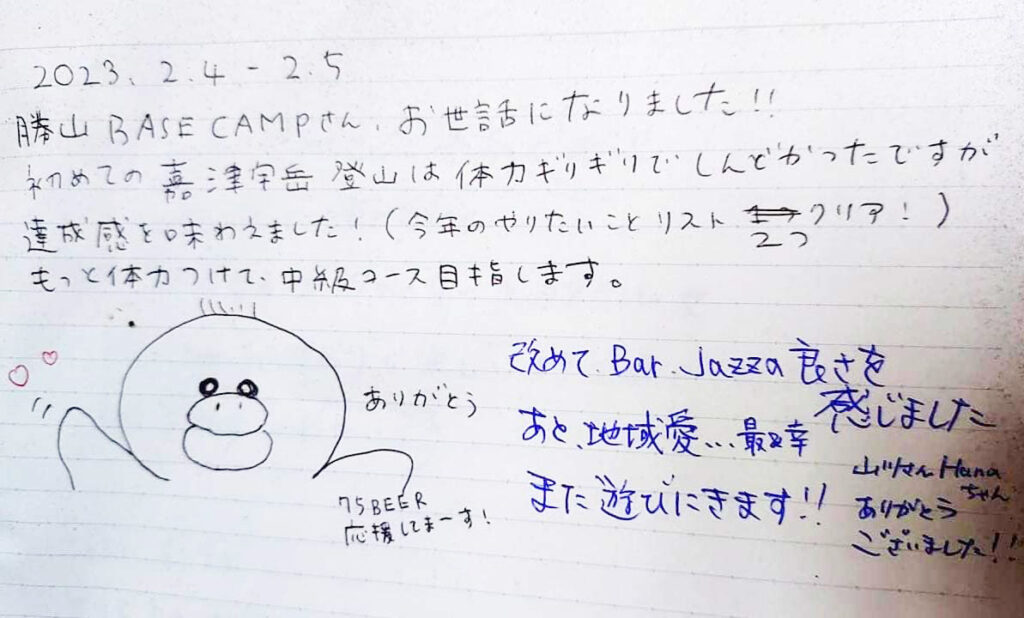 2023. 2.4 - 2.5
勝山 BASE CAMPさん、お世話になりました!!
初めての 嘉津宇岳 登山は 体力ギリギリで しんどかったですが
達成感を味わえました!(今年のやりたいこと リスト 2つ クリア!)
もっと体力つけて、中級コース目指します。
ありがとう
75BEER
応援してまーす!
改めて Bar.Jazza 良さを
感じました
あと、地域愛…最幸
また遊びにきます!!
山川さん Hana
ちゃん
ありがとう
ございました!!